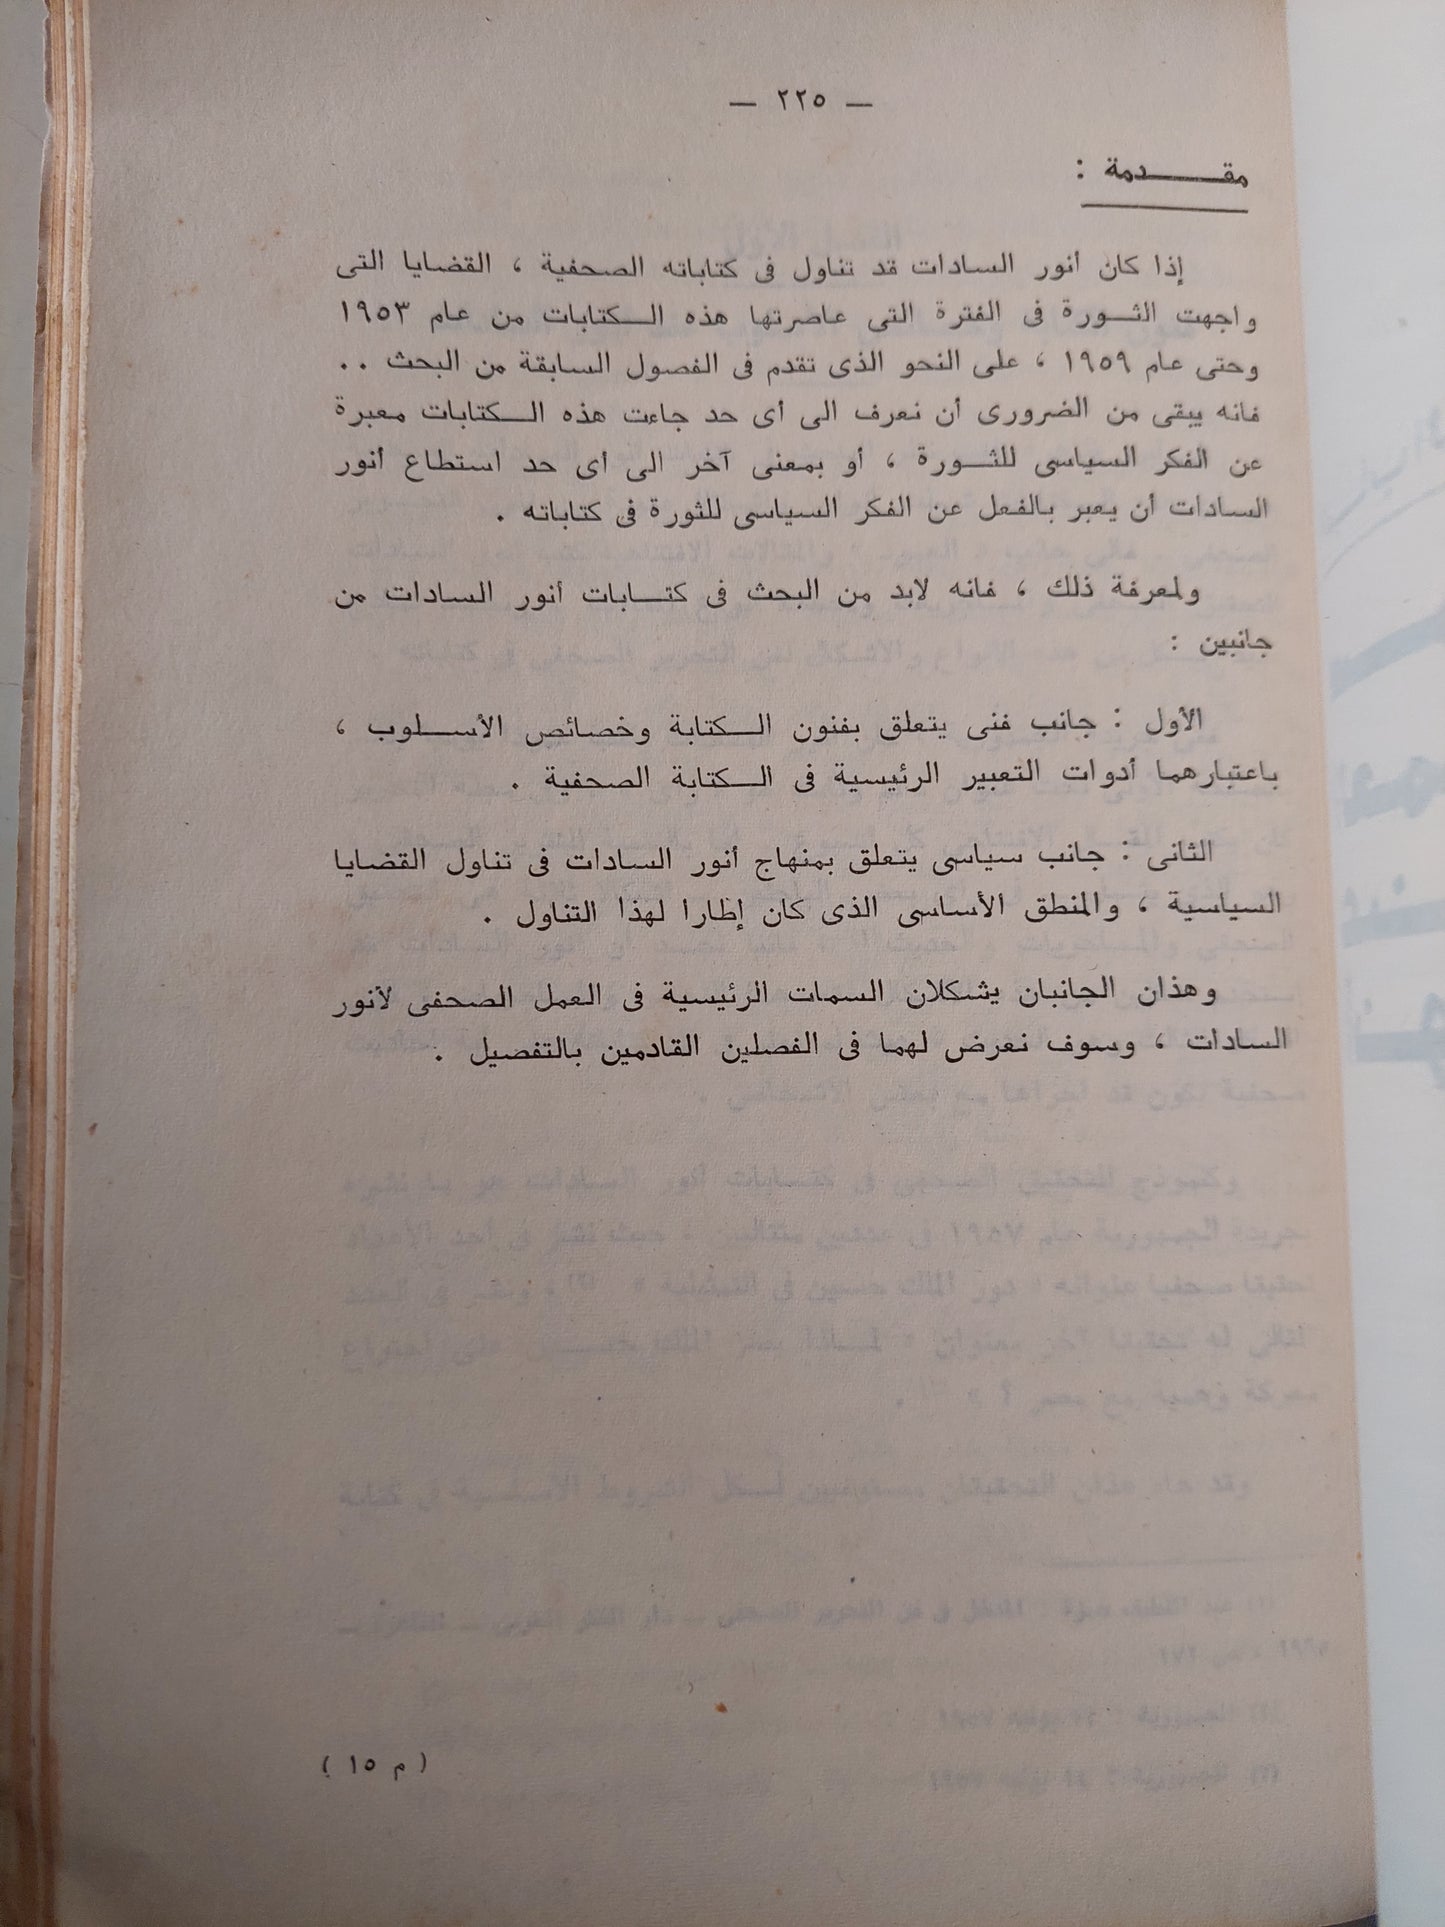 — ٢٢٥ —
مقـــــدمة :
إذا كان أنور السادات قد تناول فى كتاباته الصحفية ، القضايا التى
واجهت الثـــورة فى الفترة التى عاصرتها هذه الـــكتابات من عام ١٩٥٣
وحتى عام ١٩٥٩ ، على النحو الذى تقدم فى الفصول السابقة من البحث ..
فانه يبقى من الضرورى أن نعرف الى أى حد جاءت هذه الـــكتابات معبرة
عن الفكر السياسى للثـــورة ، أو بمعنى آخر الى أى حد استطاع أنور
السادات أن يعبر بالفعل عن الفكر السياسى للثورة فى كتاباته .
ولمعرفة ذلك ، فانه لابد من البحث فى كتـــابات أنور السادات من
جانبين :
الأول : جانب فنى يتعلق بفنون الـــكتابة وخصائص الأســـلوب ،
باعتبارهما أدوات التعبير الرئيسية فى الـــكتابة الصحفية .
الثانى : جانب سياسى يتعلق بمنهاج أنور السادات فى تناول القضايا
السياسية ، والمنطق الأساسى الذى كان إطارا لهذا التناول .
وهذان الجانبان يشكلان السمات الرئيسية فى العمل الصحفى لأنور
السادات ، وسوف نعرض لهما فى الفصلين القادمين بالتفصيل .
( م ١٥ )